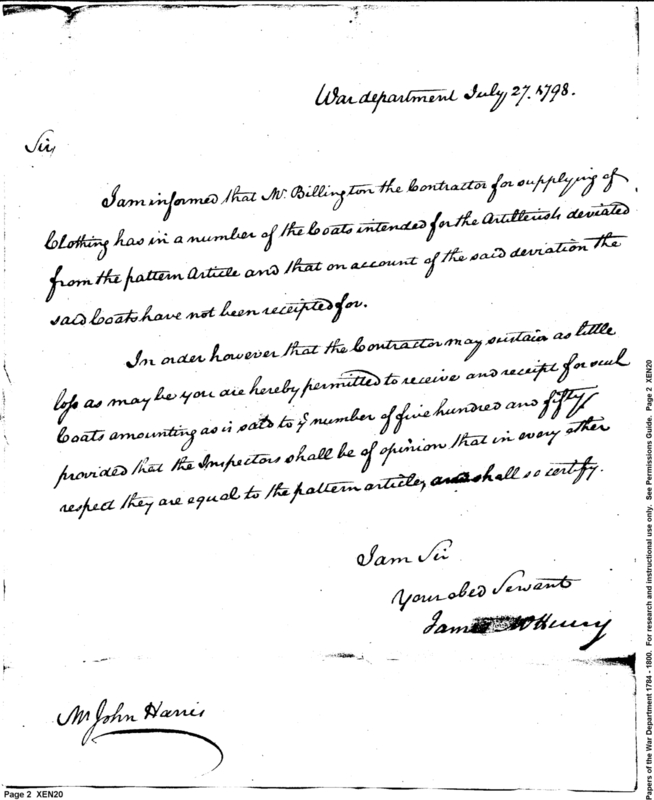 War department July 27. 1798.
Sir,
I am informed that Mr. Billington the Contractor for supplying of
Clothing has in a number of the Coats intended for the Artillerists deviated
from the pattern Article and that on account of the said deviation the
said Coats have not been receipted for.
In order however that the Contractor may sustain as little
loss as may be you are hereby permitted to receive and receipt for such
Coats amounting as is said to ye number of five hundred and fifty
provided that the Inspectors shall be of opinion that in every other
respect they are equal to the pattern article, and shall so certify.
I am Sir
Your obed Servant
James McHenry
Mr John Harris
Page 2 XEN20
Papers of the War Department 1784 - 1800. For research and instructional use only. See Permissions Guide. Page 2 XEN20